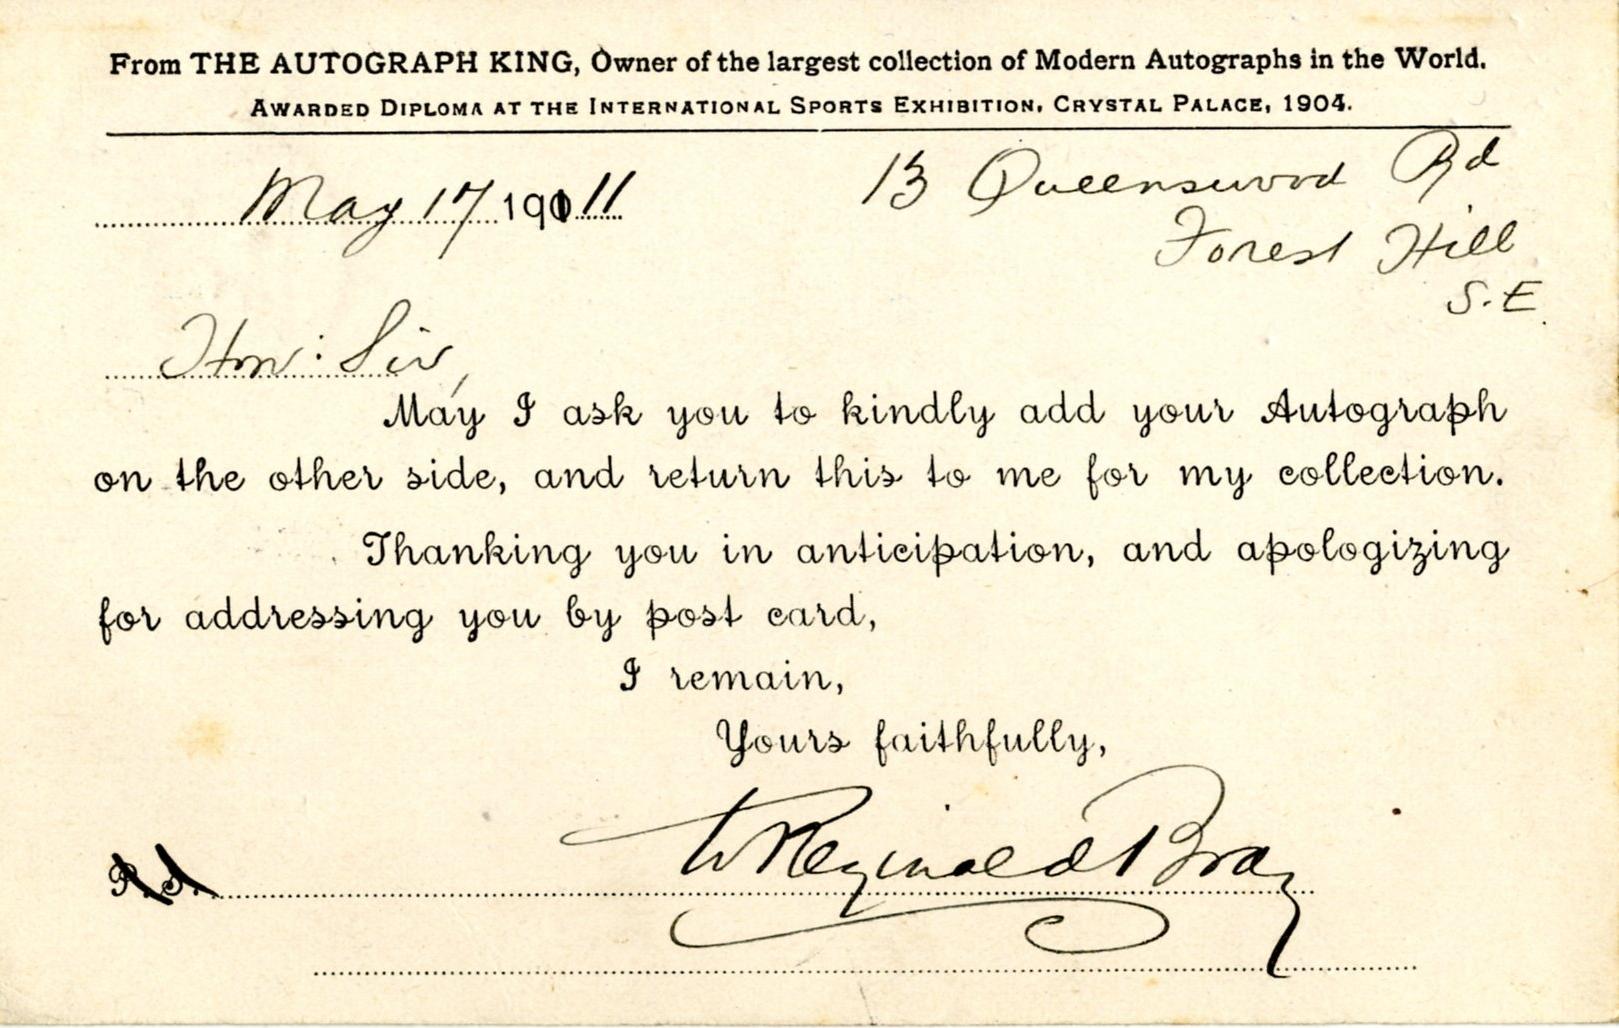 From THE AUTOGRAPH KING, Owner of the largest collection of Modern Autographs in the World.
AWARDED DIPLOMA AT THE INTERNATIONAL SPORTS EXHIBITION, CRYSTAL PALACE, 1904.
May 17 1911
13 Queenswood Rd
Forest Hill
S.E.
Hon: Sir,
May I ask you to kindly add your Autograph
on the other side, and return this to me for my collection.
Thanking you in anticipation, and apologizing
for addressing you by post card,
I remain,
Yours faithfully,
W Reginald Bray
P.S.